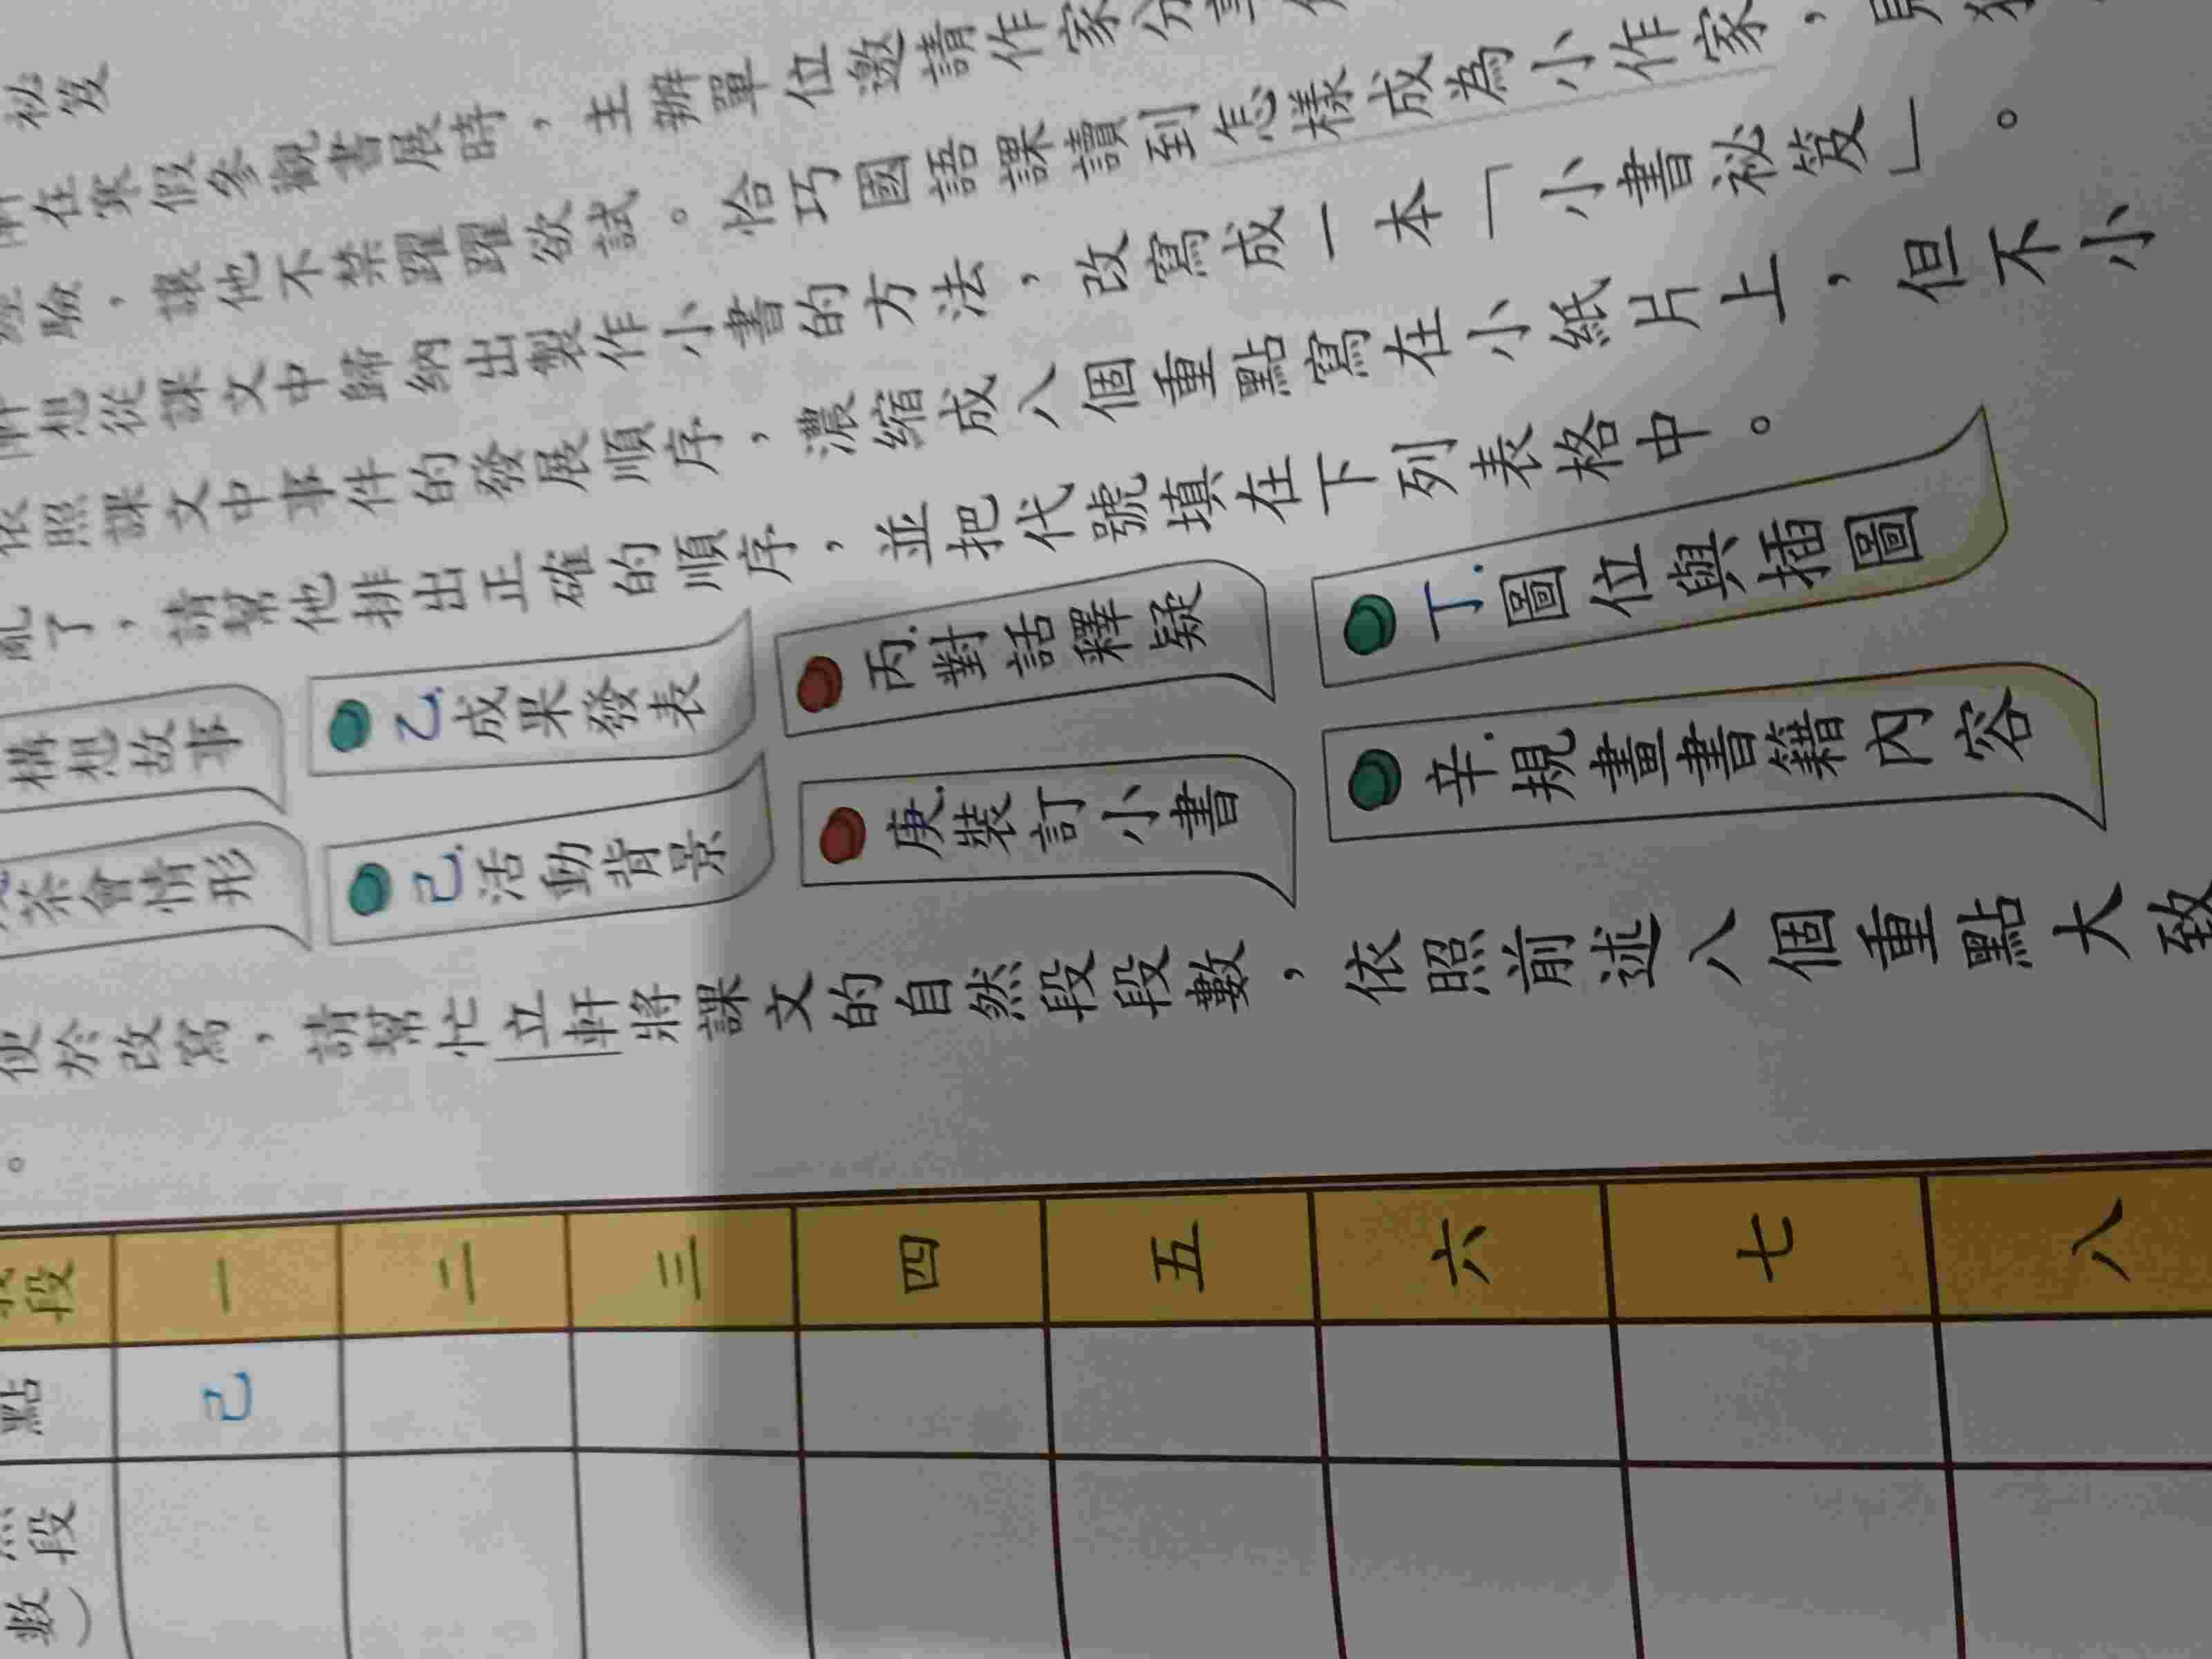 祕笈
在寒假參觀書展時，主辦單位邀請作家分享
驗，讓他不禁躍躍欲試。恰巧國語課讀到怎樣成為小作家，
想從課文中歸納出製作小書的方法，改寫成一本「小書祕笈」。
依照課文中事件的發展順序，濃縮成八個重點寫在小紙片上，但不小
亂了，請幫他排出正確的順序，並把代號填在下列表格中。
構想故事
乙.成果發表
丙.對話釋疑
丁.圖位與插圖
茶會情形
己.活動背景
庚.裝訂小書
辛.規畫書籍內容
便於改寫，請幫忙立軒將課文的自然段段數，依照前述八個重點大致
。
段 一 二 三 四 五 六 七 八
點 己
段
數）